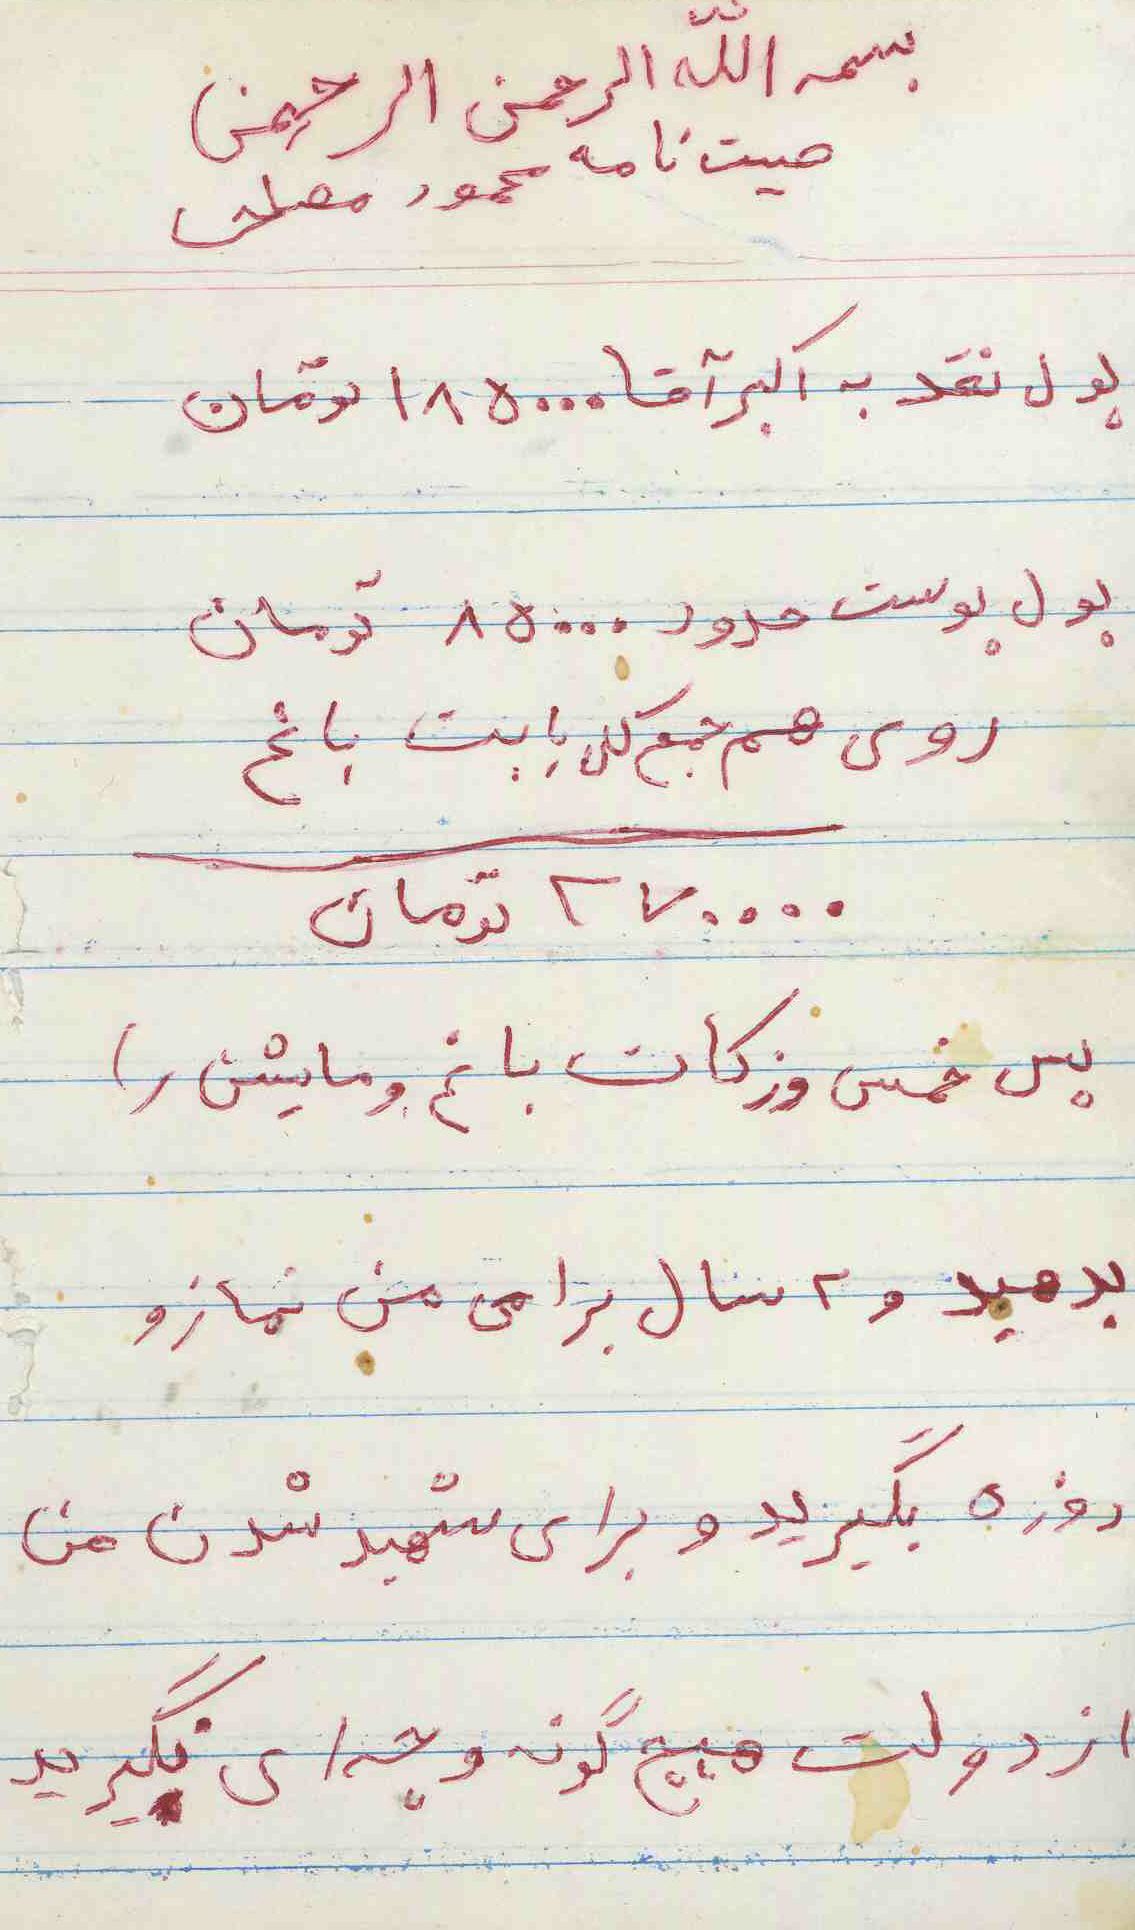 بسمه الله الرحمن الرحیمن
صیت نامه محمود مصلحی
پول نقد به اکبر آقا ۱۸۵۰۰۰ تومان
پول پوست حدود ۸۵۰۰۰ تومان
روی هم جمع کل بابت باغ
۲۷۰۰۰۰ تومان
پس خمس وزکات باغ و مایش را
بدهید و ۲ سال برامی من نماز و
روزه بگیرید و برای شهید شدن من
از دولت هیچ گونه وجه ای نگیرید